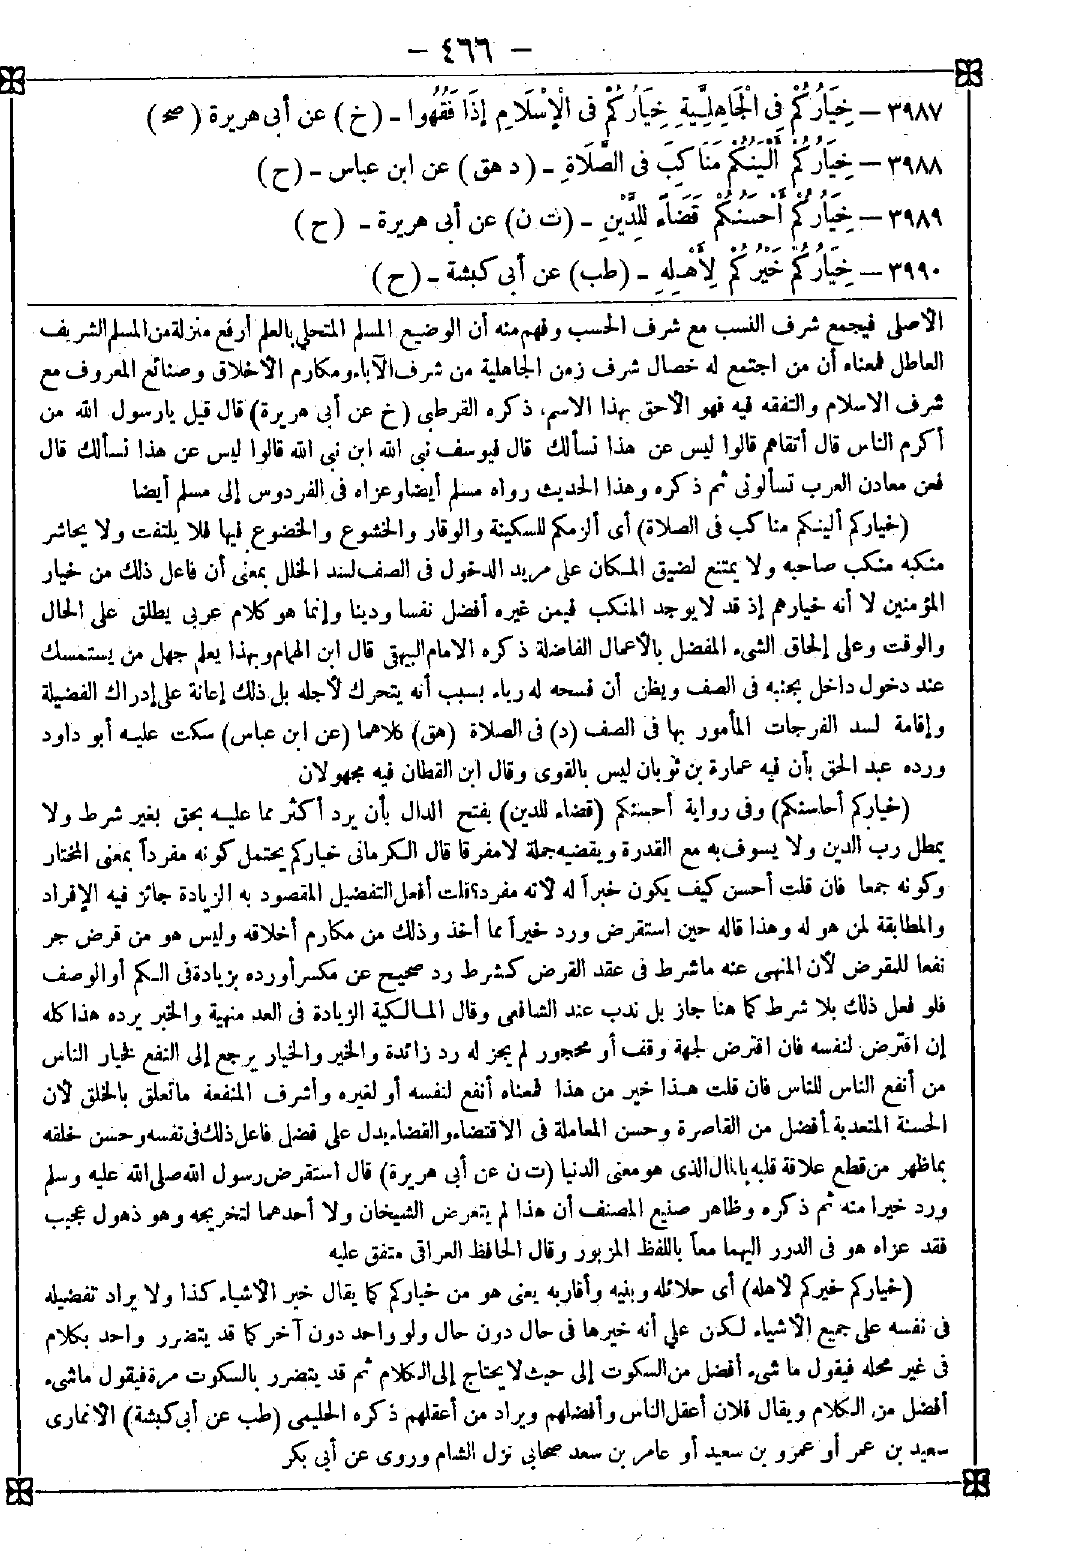 — ٤٦٦ —
٣٩٨٧ — خِيَارُكُمْ فِى الْجَاهِلِيَّةِ خِيَارُكُمْ فِى الْإِسْلَامِ إِذَا فَقُهُوا - (خ) عن أبى هريرة (صح)
٣٩٨٨ — خِيَارُكُمْ أَلْيَنُكُمْ مَنَاكِبَ فِى الصَّلَاةِ - (د هق) عن ابن عباس - (ح)
٣٩٨٩ — خِيَارُكُمْ أَحْسَنُكُمْ قَضَاءً لِلدَّيْنِ - (ت ن) عن أبى هريرة - (ح)
٣٩٩٠ — خِيَارُكُمْ خَيْرُكُمْ لِأَهْلِهِ - (طب) عن أبى كبشة - (ح)
الأصلى فيجمع شرف النسب مع شرف الحسب وفهم منه أن الوضيع المسلم المتحلى بالعلم أرفع منزلة من المسلم الشريف
العاطل فمعناه أن من اجتمع له خصال شرف زمن الجاهلية من شرف الآباء ومكارم الأخلاق وصنائع المعروف مع
شرف الاسلام والتفقه فيه فهو الأحق بهذا الاسم، ذكره القرطبى (خ عن أبى هريرة) قال قيل يارسول الله من
أكرم الناس قال أتقاهم قالوا ليس عن هذا نسألك قال فيوسف نبى الله ابن نبى الله قالوا ليس عن هذا نسألك قال
فعن معادن العرب تسألونى ثم ذكره وهذا الحديث رواه مسلم أيضا وعزاه فى الفردوس إلى مسلم أيضا
(خياركم ألينكم مناكب فى الصلاة) أى ألزمكم للسكينة والوقار والخشوع والخضوع فيها فلا يلتفت ولا يحاشر
منكبه منكب صاحبه ولا يمتنع لضيق المكان على مريد الدخول فى الصف لسد الخلل بمعنى أن فاعل ذلك من خيار
المؤمنين لا أنه خيارهم إذ قد لا يوجد المنكب فيمن غيره أفضل نفسا ودينا وإنما هو كلام عربى يطلق على الحال
والوقت وعلى إلحاق الشىء المفضل بالأعمال الفاضلة ذكره الامام البيهقى قال ابن الهمام وبهذا يعلم جهل من يستمسك
عند دخول داخل بجنبه فى الصف ويظن أن فسحه له رياء بسبب أنه يتحرك لأجله بل ذلك إعانة على إدراك الفضيلة
وإقامة لسد الفرجات المأمور بها فى الصف (د) فى الصلاة (هق) كلاهما (عن ابن عباس) سكت عليه أبو داود
ورده عبد الحق بأن فيه عمارة بن ثوبان ليس بالقوى وقال ابن القطان فيه مجهولان
(خياركم أحاسنكم) وفى رواية أحسنكم (قضاء للدين) بفتح الدال بأن يرد أكثر مما عليه بحق بغير شرط ولا
يمطل رب الدين ولا يسوف به مع القدرة ويقضيه جملة لا مفرقا قال الكرمانى خياركم يحتمل كونه مفرداً بمعنى المختار
وكونه جمعا فان قلت أحسن كيف يكون خبراً له لأنه مفرد؟ قلت أفعل التفضيل المقصود به الزيادة جائز فيه الإفراد
والمطابقة لمن هو له وهذا قاله حين استقرض ورد خيراً مما أخذ وذلك من مكارم أخلاقه وليس هو من قرض جر
نفعا للمقرض لأن المنهى عنه ماشرط فى عقد القرض كشرط رد صحيح عن مكسر أو رده بزيادة فى الكم أو الوصف
فلو فعل ذلك بلا شرط كما هنا جاز بل ندب عند الشافعى وقال المالكية الزيادة فى العد منهية والخبر يرده هذا كله
إن اقترض لنفسه فان اقترض لجهة وقف أو محجور لم يجز له رد زائدة والخير والخيار يرجع إلى النفع فخيار الناس
من أنفع الناس للناس فان قلت هذا خير من هذا فمعناه أنفع لنفسه أو لغيره وأشرف المنفعة ماتعلق بالخلق لأن
الحسنة المتعدية أفضل من القاصرة وحسن المعاملة فى الاقتضاء والقضاء يدل على فضل فاعل ذلك فى نفسه وحسن خلقه
بماظهر من قطع علاقة قلبه بالمال الذى هو معنى الدنيا (ت ن عن أبى هريرة) قال استقرض رسول الله صلى الله عليه وسلم
ورد خيرا منه ثم ذكره وظاهر صنيع المصنف أن هذا لم يتعرض الشيخان ولا أحدهما لتخريجه وهو ذهول عجيب
فقد عزاه هو فى الدرر اليهما معاً باللفظ المزبور وقال الحافظ العراقى متفق عليه
(خياركم خيركم لأهله) أى حلائله وبنيه وأقاربه يعنى هو من خياركم كما يقال خير الأشياء كذا ولا يراد تفضيله
فى نفسه على جميع الأشياء لكن على أنه خيرها فى حال دون حال ولو واحد دون آخر كما قد يتضرر واحد بكلام
فى غير محله فيقول ما شىء أفضل من السكوت إلى حيث لا يحتاج إلى الكلام ثم قد يتضرر بالسكوت مرة فيقول ماشىء
أفضل من الكلام ويقال فلان أعقل الناس وأفضلهم ويراد من أعقلهم ذكره الحليمى (طب عن أبى كبشة) الأنمارى
سعيد بن عمر أو عمرو بن سعيد أو عامر بن سعد صحابى نزل الشام وروى عن أبى بكر